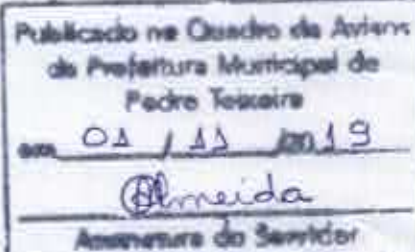 Publicado no Quadro de Avisos
da Prefeitura Municipal de
Pedro Teixeira
em 01 / 11 /2019
Almeida
Assinatura do Servidor